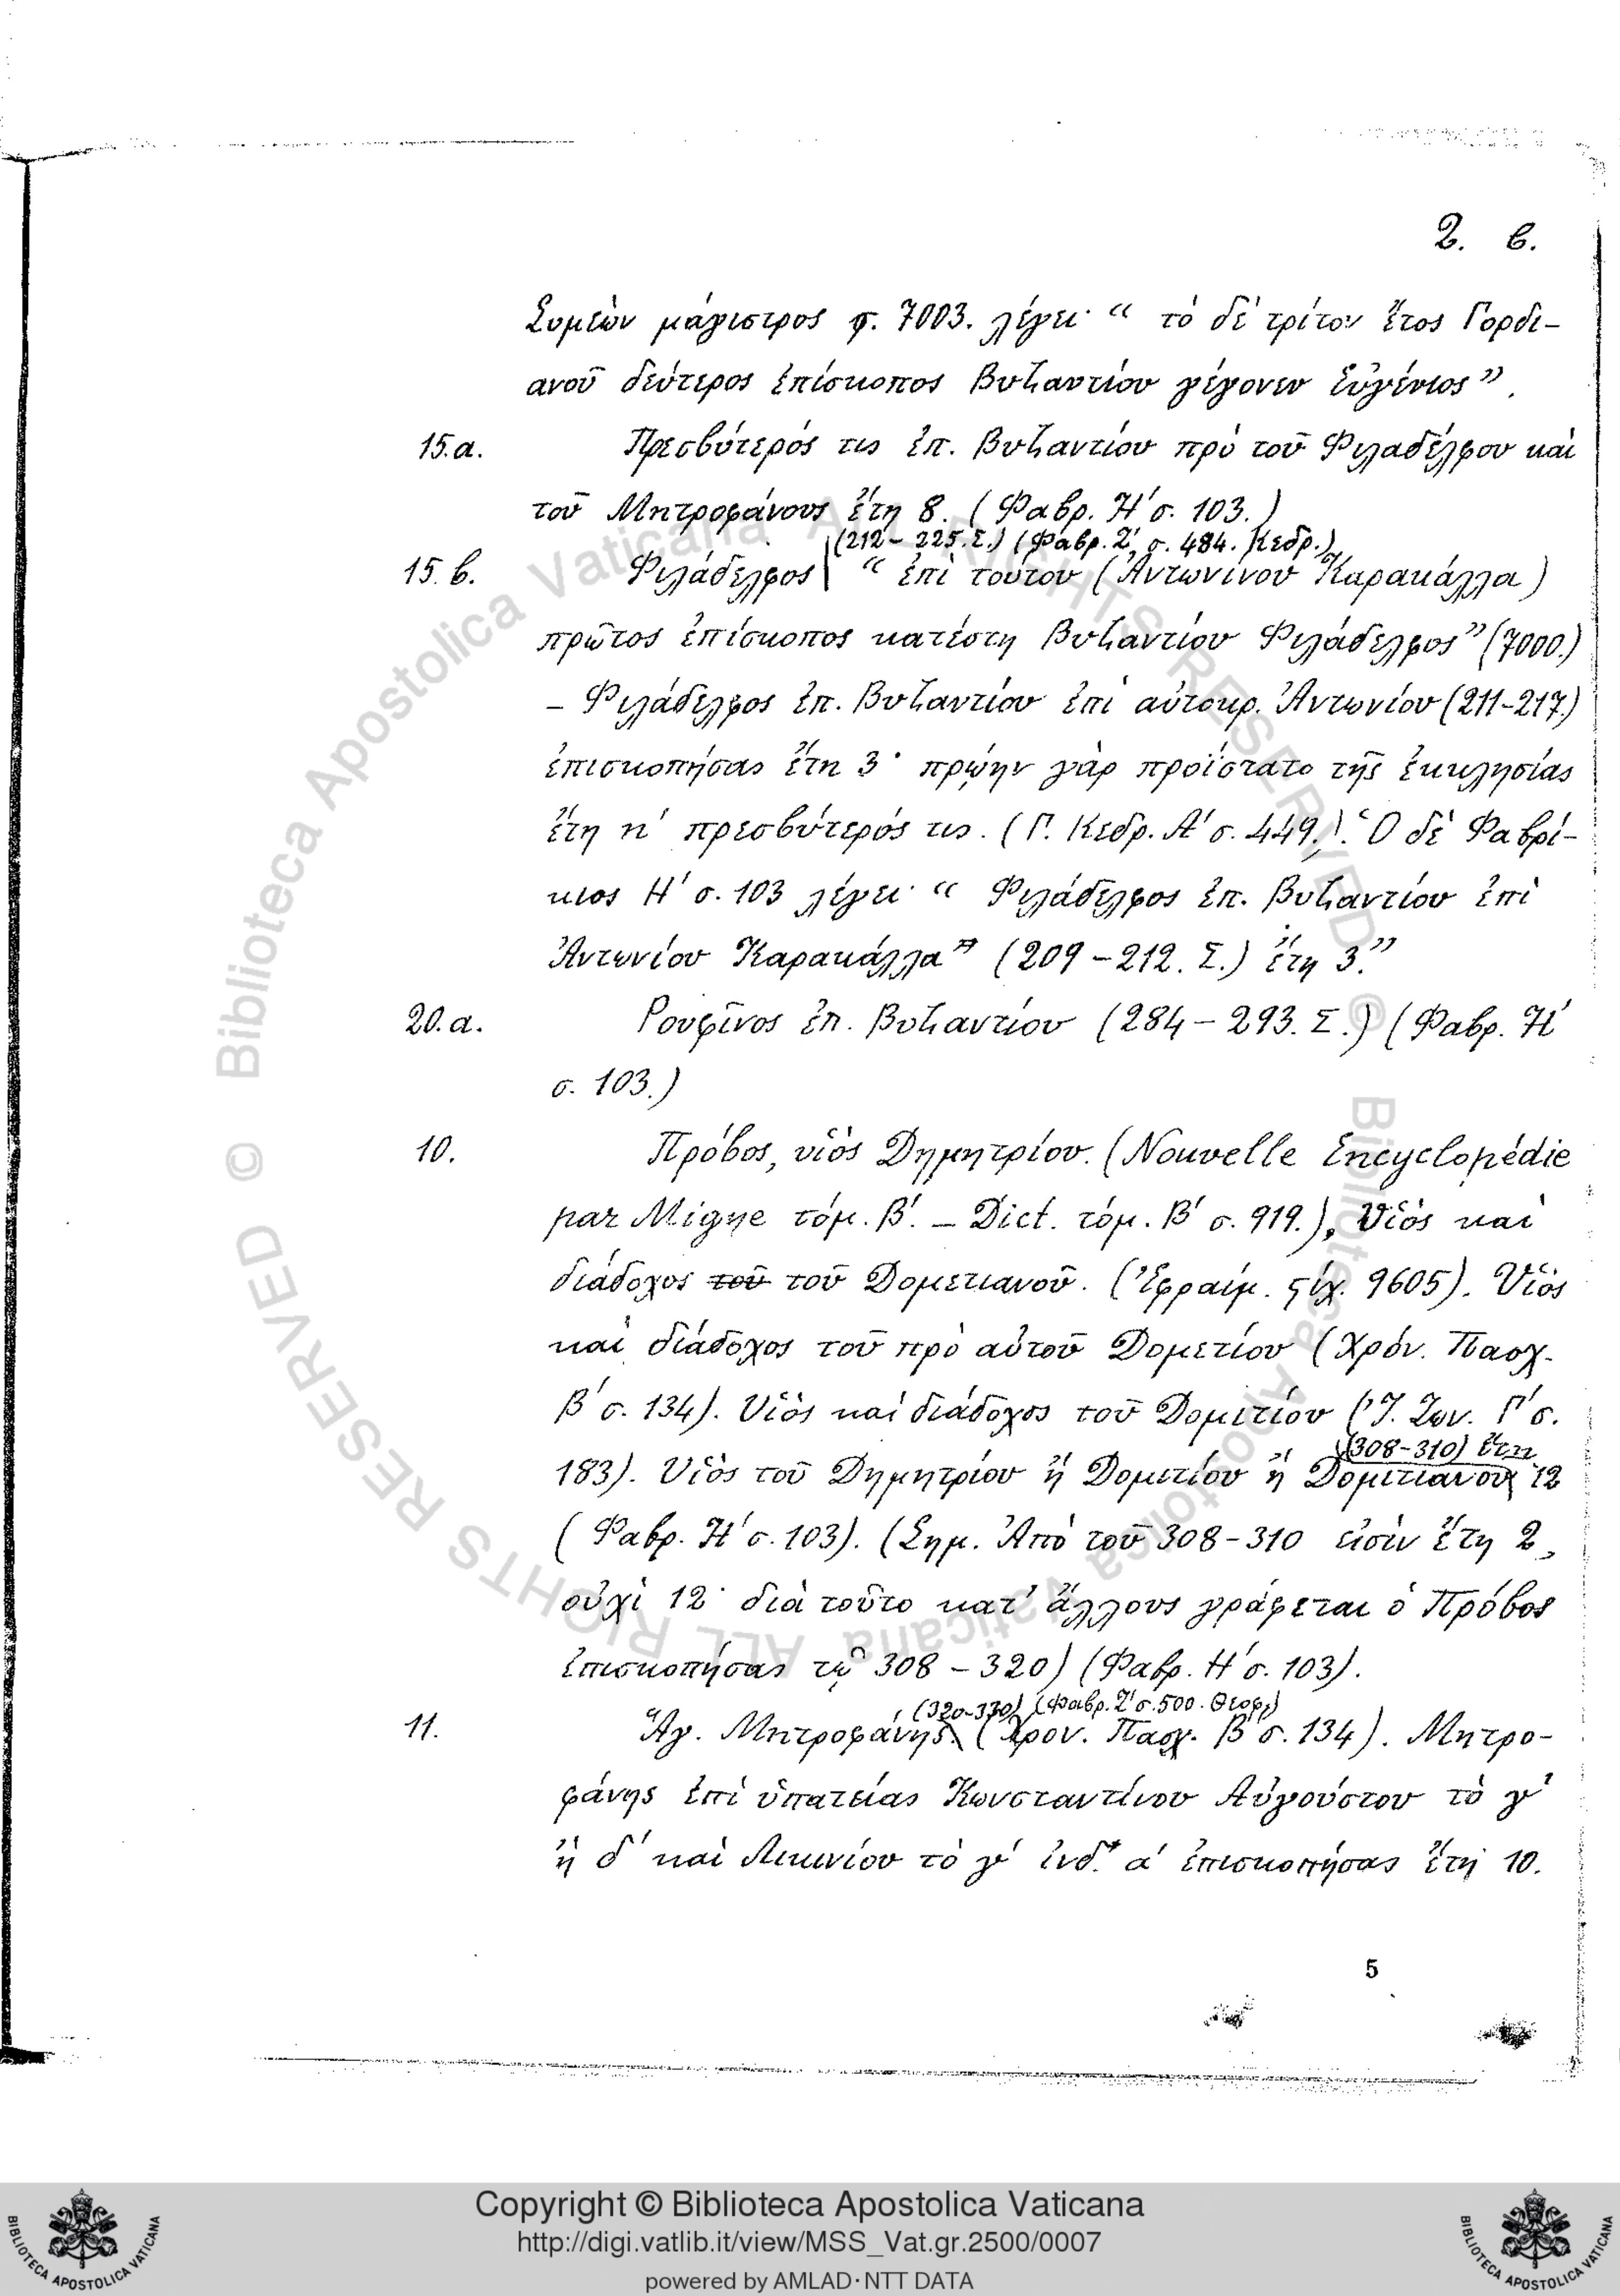 2. β.
Συμεὼν μάγιστρος σ. 7003. λέγει· “ τὸ δὲ τρίτον ἔτος Γορδι-
ανοῦ δεύτερος ἐπίσκοπος Βυζαντίου γέγονεν Εὐγένιος”.
15.α. Πρεσβύτερός τις ἐπ. Βυζαντίου πρὸ τοῦ Φιλαδέλφου καὶ
τοῦ Μητροφάνους ἔτη 8. (Φαβρ. Η′ σ. 103.)
(212-225.Σ.) (Φαβρ. Ζ′, σ. 484. Κεδρ.)
15.β. Φιλάδελφος “ ἐπὶ τούτου (Ἀντωνίνου Καρακάλλα)
πρῶτος ἐπίσκοπος κατέστη Βυζαντίου Φιλάδελφος” (7000.)
– Φιλάδελφος ἐπ. Βυζαντίου ἐπὶ αὐτοκρ. Ἀντωνίου (211-217.)
ἐπισκοπήσας ἔτη 3· πρῴην γὰρ προΐστατο τῆς ἐκκλησίας
ἔτη η′ πρεσβύτερός τις. (Γ. Κεδρ. Α′ σ. 449.). Ὁ δὲ Φαβρί-
κιος Η′ σ. 103 λέγει· “ Φιλάδελφος ἐπ. Βυζαντίου ἐπὶ
Ἀντωνίου Καρακάλλα” (209-212. Σ.) ἔτη 3.”
20.α. Ρουφῖνος ἐπ. Βυζαντίου (284-293. Σ.) (Φαβρ. Η′
σ. 103.)
10. Πρόβος, υἱὸς Δημητρίου. (Nouvelle Encyclopédie
par Migne τόμ. Β′. – Dict. τόμ. Β′ σ. 919.), Υἱὸς καὶ
διάδοχος τοῦ τοῦ Δομετιανοῦ. (Ἐφραίμ. ςίχ. 9605). Υἱὸς
καὶ διάδοχος τοῦ πρὸ αὐτοῦ Δομετίου (Χρόν. Πασχ.
Β′ σ. 134). Υἱὸς καὶ διάδοχος τοῦ Δομιτίου (Ἰ. Ζων. Γ′ σ.
(308-310) ἔτη
183). Υἱὸς τοῦ Δημητρίου ἢ Δομιτίου ἢ Δομιτιανοῦ 12
(Φαβρ. Η′ σ. 103). (Σημ. Ἀπὸ τοῦ 308-310 εἰσὶν ἔτη 2,
οὐχὶ 12· διὰ τοῦτο κατ’ ἄλλους γράφεται ὁ Πρόβος
ἐπισκοπήσας τῷ 308-320) (Φαβρ. Η′ σ. 103).
(320-330) (Φαβρ. Ζ′ σ. 500. Θεοφ.)
11. Ἅγ. Μητροφάνης. (Χρον. Πασχ. Β′ σ. 134). Μητρο-
φάνης ἐπὶ ὑπατείας Κωνσταντίνου Αὐγούστου τὸ γ′
ἢ δ′ καὶ Λικινίου τὸ γ′ ἰνδ. α′ ἐπισκοπήσας ἔτη 10.
5
© Biblioteca Apostolica Vaticana ALL RIGHTS RESERVED
© Biblioteca Apostolica Vaticana ALL RIGHTS RESERVED
Copyright © Biblioteca Apostolica Vaticana
http://digi.vatlib.it/view/MSS_Vat.gr.2500/0007
powered by AMLAD·NTT DATA
BIBLIOTECA APOSTOLICA VATICANA
BIBLIOTECA APOSTOLICA VATICANA